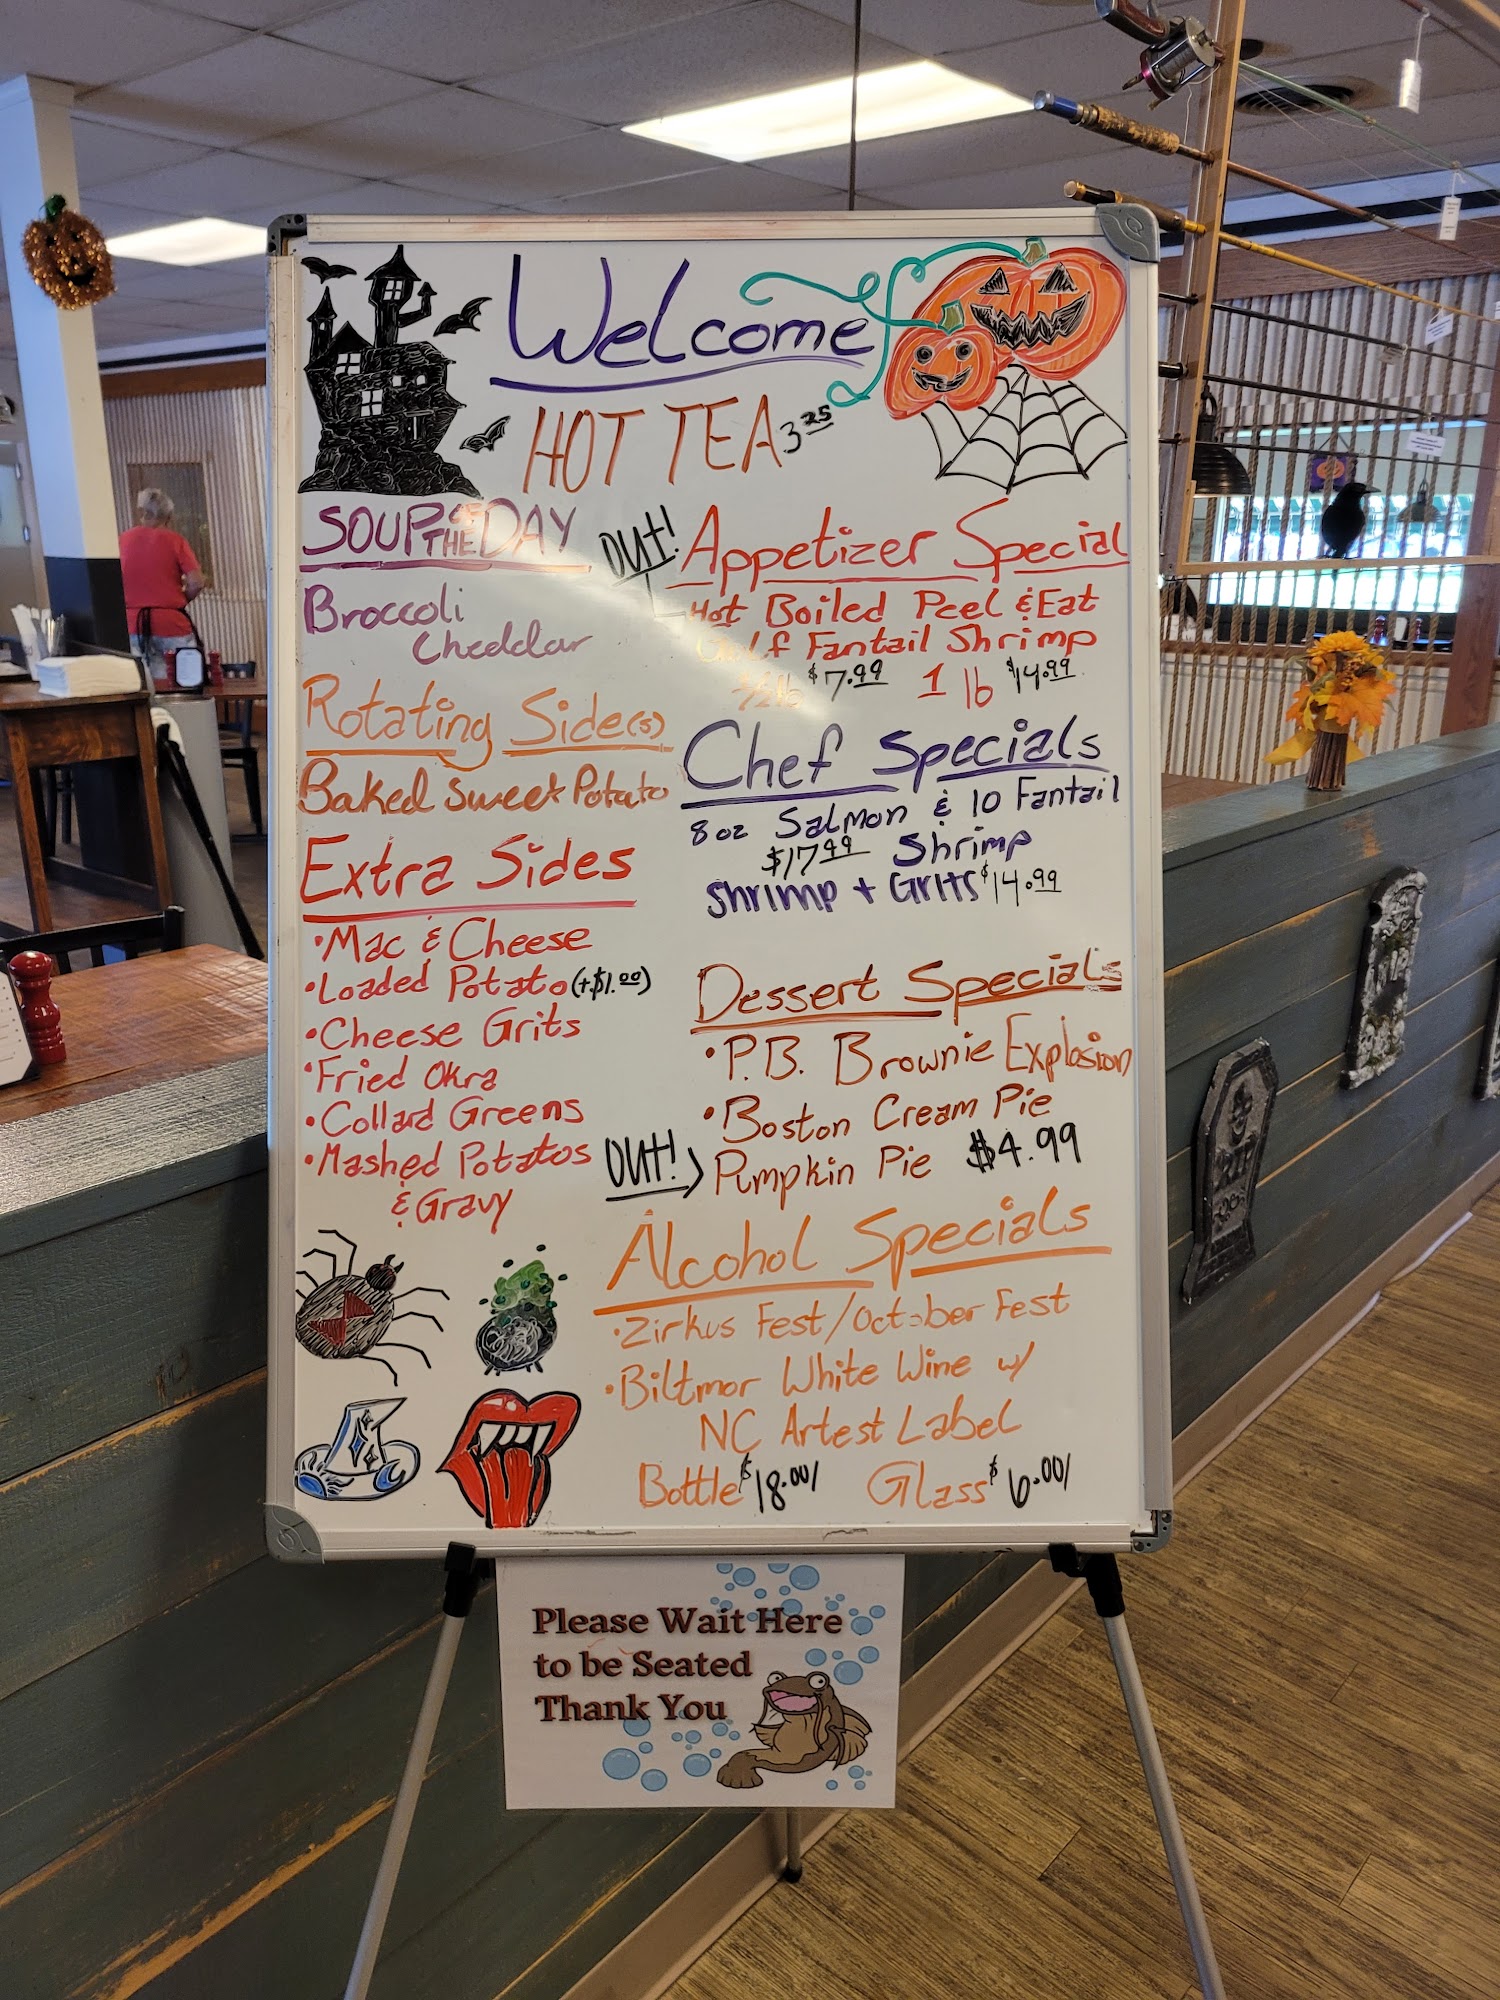 Welcome
HOT TEA 3.25
SOUP OF THE DAY
Broccoli
Cheddar
Rotating Side(s)
Baked Sweet Potato
Extra Sides
•Mac & Cheese
•Loaded Potato (+$1.00)
•Cheese Grits
•Fried Okra
•Collard Greens
•Mashed Potatos
& Gravy
OUT! Appetizer Special
Hot Boiled Peel & Eat
Gulf Fantail Shrimp
1/2 lb $7.99 1 lb $14.99
Chef Specials
8oz Salmon & 10 Fantail
$17.99 Shrimp
Shrimp + Grits $14.99
Dessert Specials
•P.B. Brownie Explosion
•Boston Cream Pie
OUT! Pumpkin Pie $4.99
Alcohol Specials
•Zirkus Fest/October Fest
•Biltmor White Wine w/
NC Artest Label
Bottle $18.00/ Glass $6.00/
Please Wait Here
to be Seated
Thank You
RIP